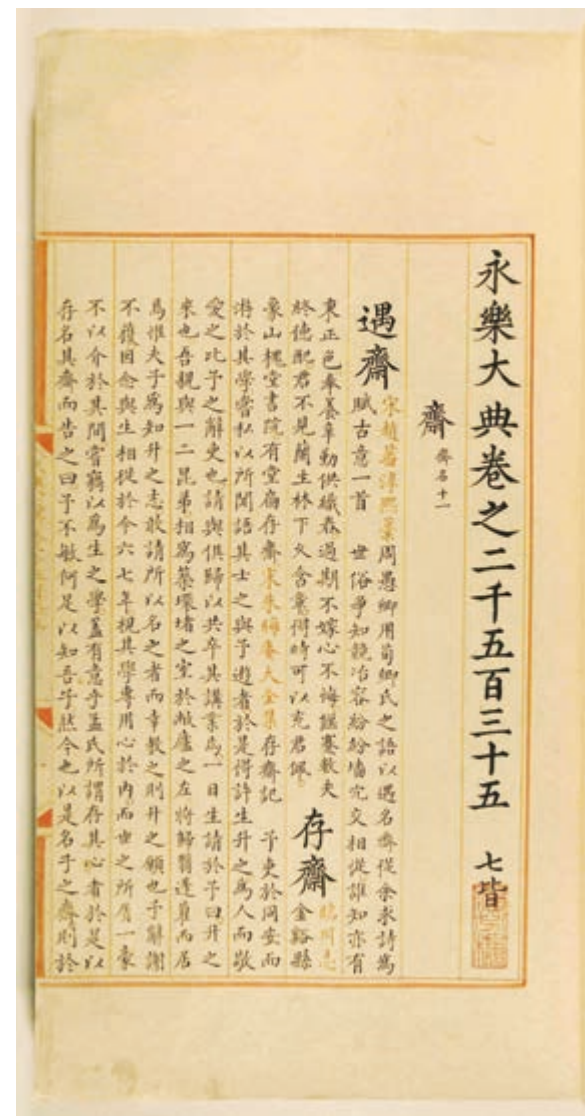 永樂大典卷之二千五百三十五 七皆
齋 齋名十一
遇齋 宋趙蕃淳熙藁周愚卿用荀卿氏之語以遇名齋從余求詩為
賦古意一首 世俗爭知競冶容紛紛墻穴交相從誰知亦有
東正色奉養辛勤供織舂過期不嫁心不悔蹇數夫
終德配君不見蘭生林下久含薰得時可以充君佩
存齋 臨川志
金谿縣
象山槐堂書院有堂扁存齋宋朱晦庵大全集存齋記 予吏於同安而
游於其學嘗私以所聞語其士之與予遊者於是得許生升之為人而敬
愛之比予之辭吏也請與俱歸以共卒其講業焉一日生請於予曰升之
來也吾親與一二昆弟相為築環堵之室於敝廬之左將歸翳蓬藋而居
焉惟夫子為知升之志敢請所以名之者而幸教之則升之願也予辭謝
不獲因念與生相從於今六七年視其學專用心於內而世之所屑一毫
不以介於其間嘗竊以為生之學蓋有意乎孟氏所謂存其心者於是以
存名其齋而告之曰予不敏何足以知吾子然今也以是名子之齋則於